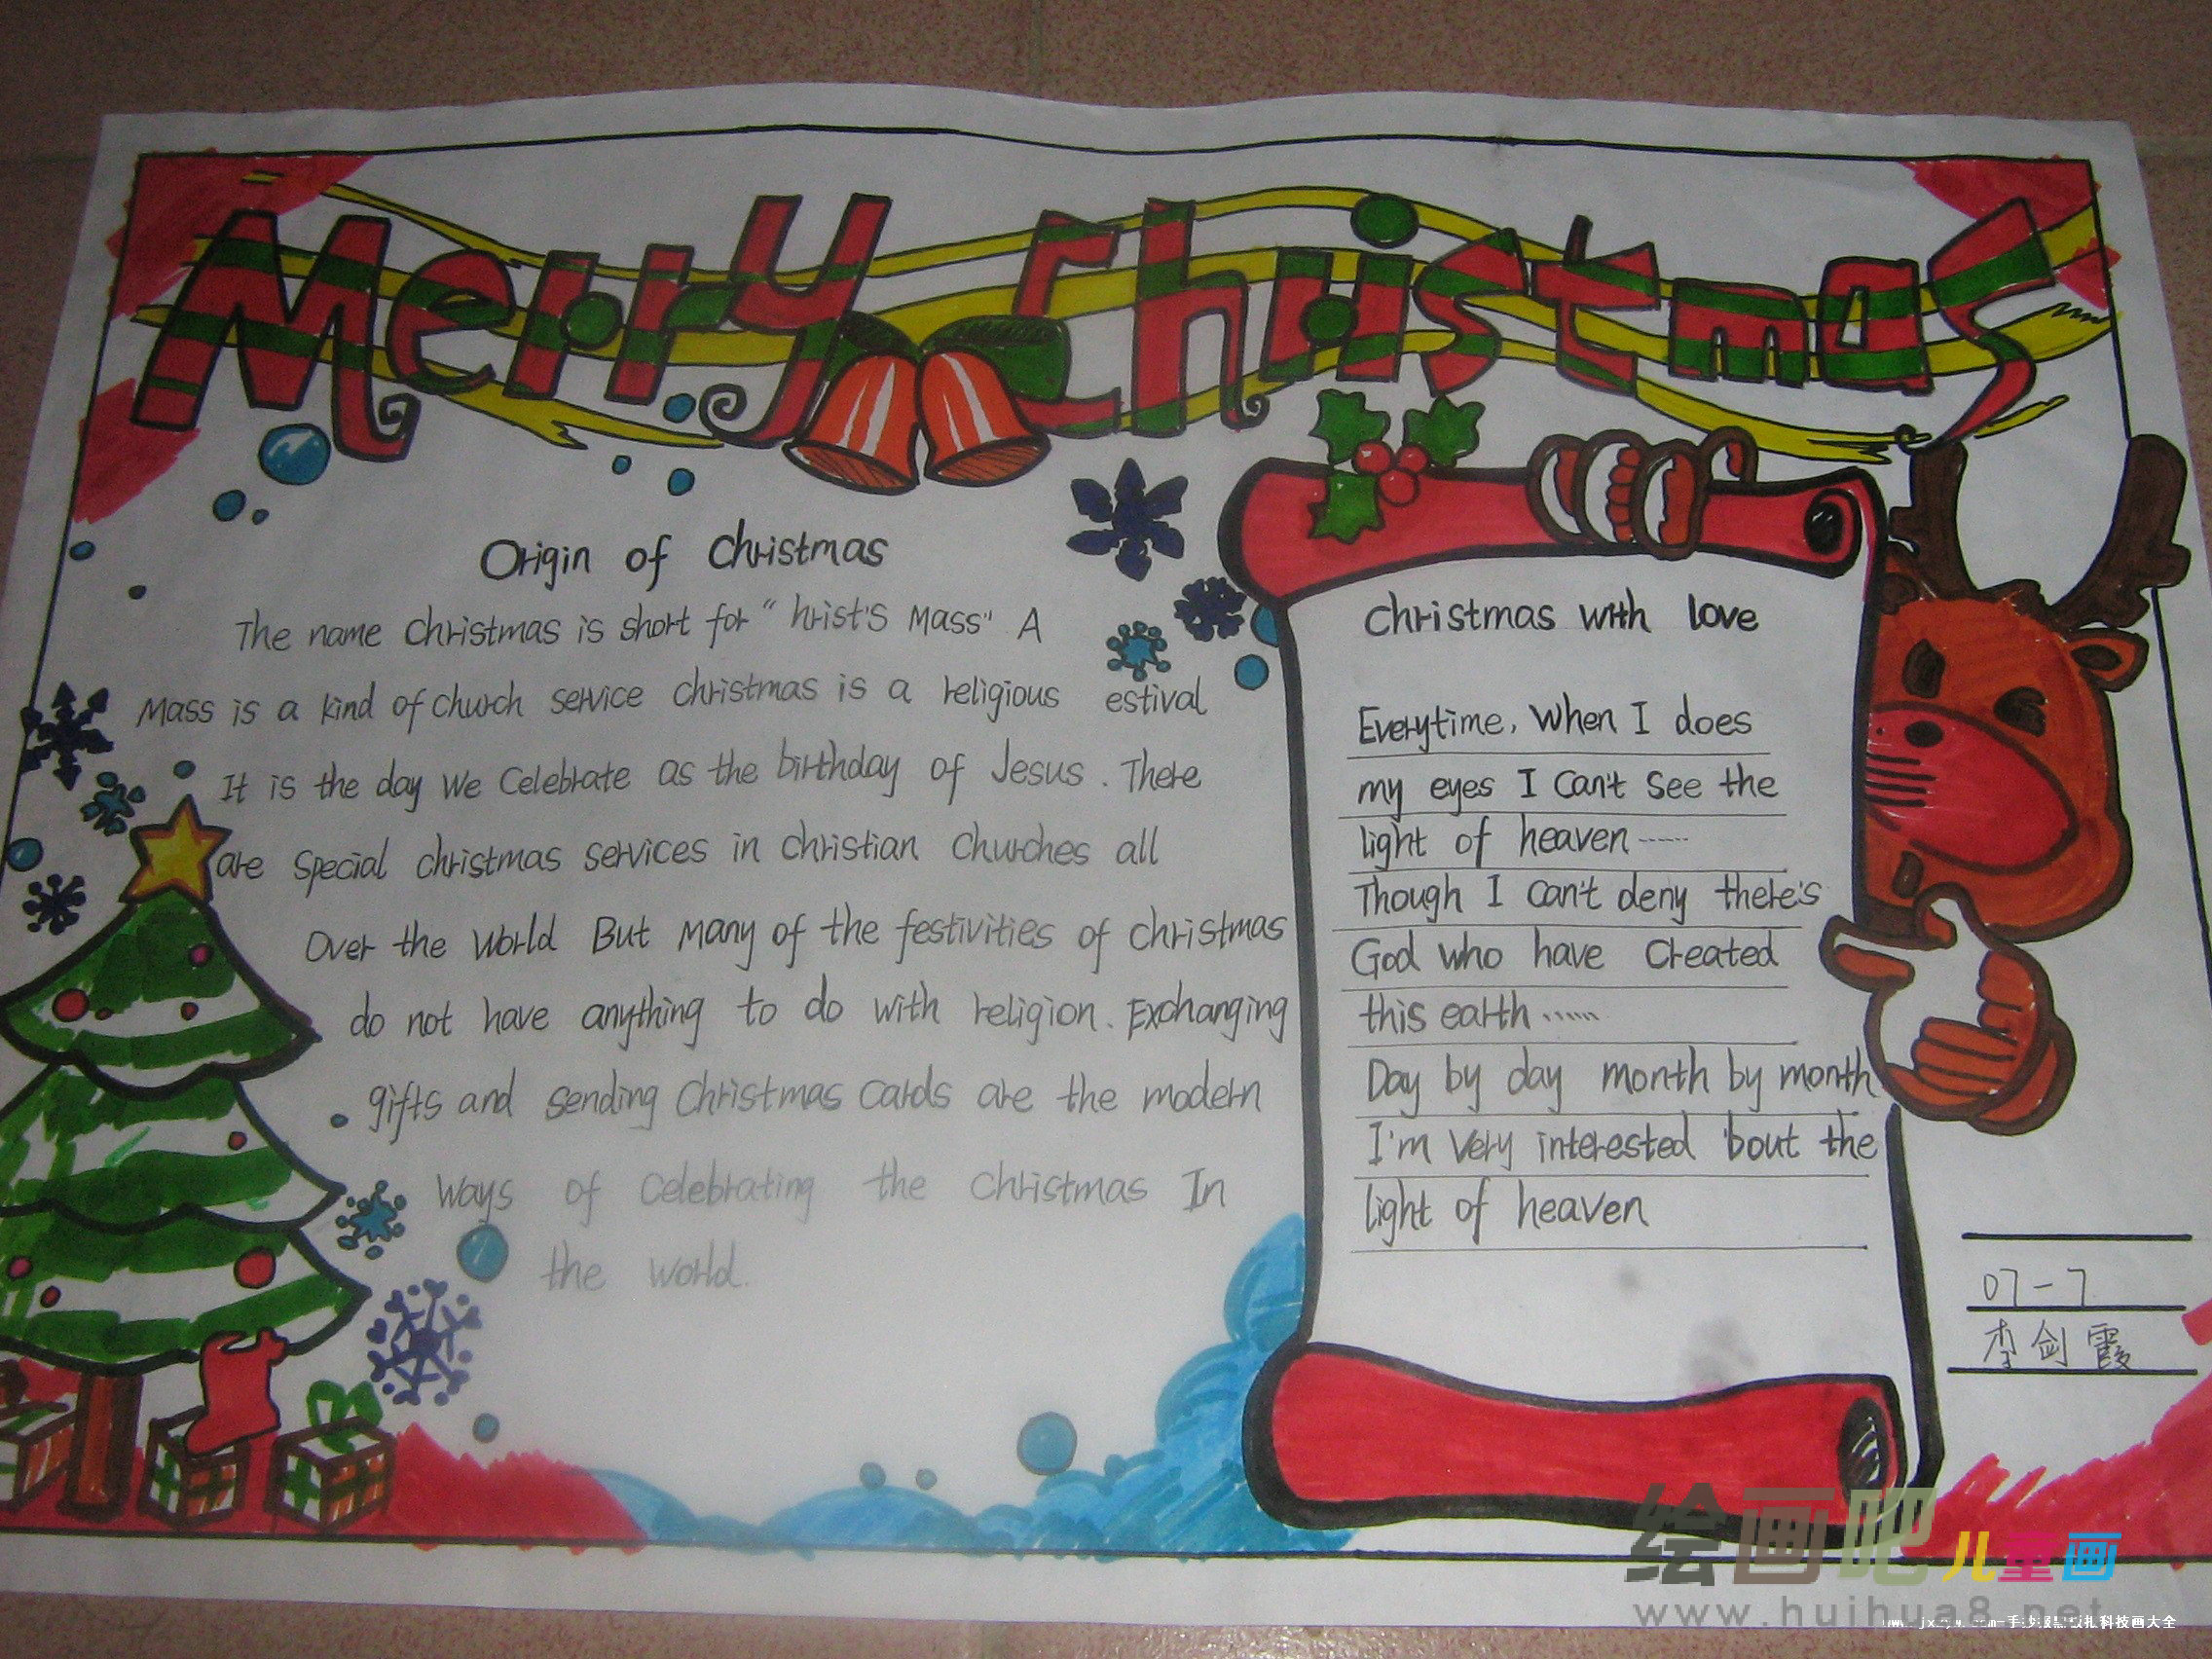 Merry Christmas
Origin of Christmas
The name Christmas is short for "hrist's Mass" A
Mass is a kind of church service christmas is a religious estival
It is the day we celebrate as the birthday of Jesus. There
are special christmas services in christian churches all
Over the world But many of the festivities of christmas
do not have anything to do with religion. Exchanging
gifts and sending Christmas cards are the modern
ways of celebrating the christmas In
the world.
Christmas with love
Everytime, when I does
my eyes I can't see the
light of heaven ......
Though I can't deny there's
God who have created
this earth ......
Day by day month by month
I'm very interested 'bout the
light of heaven
07-7
李剑霞
绘画吧儿童画
www.huihua8.net
科技画大全